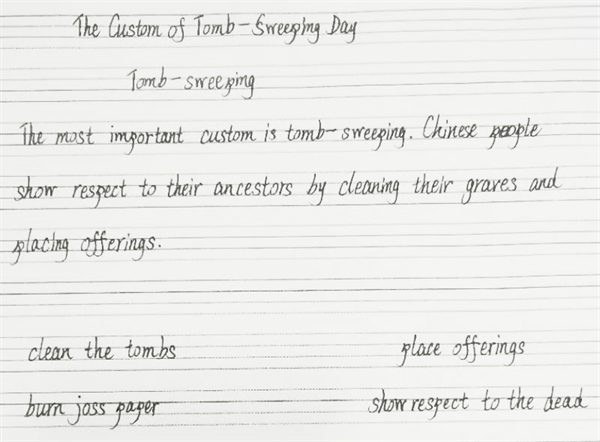 The Custom of Tomb-Sweeping Day
Tomb-sweeping
The most important custom is tomb-sweeping. Chinese people
show respect to their ancestors by cleaning their graves and
placing offerings.
clean the tombs place offerings
burn joss paper show respect to the dead